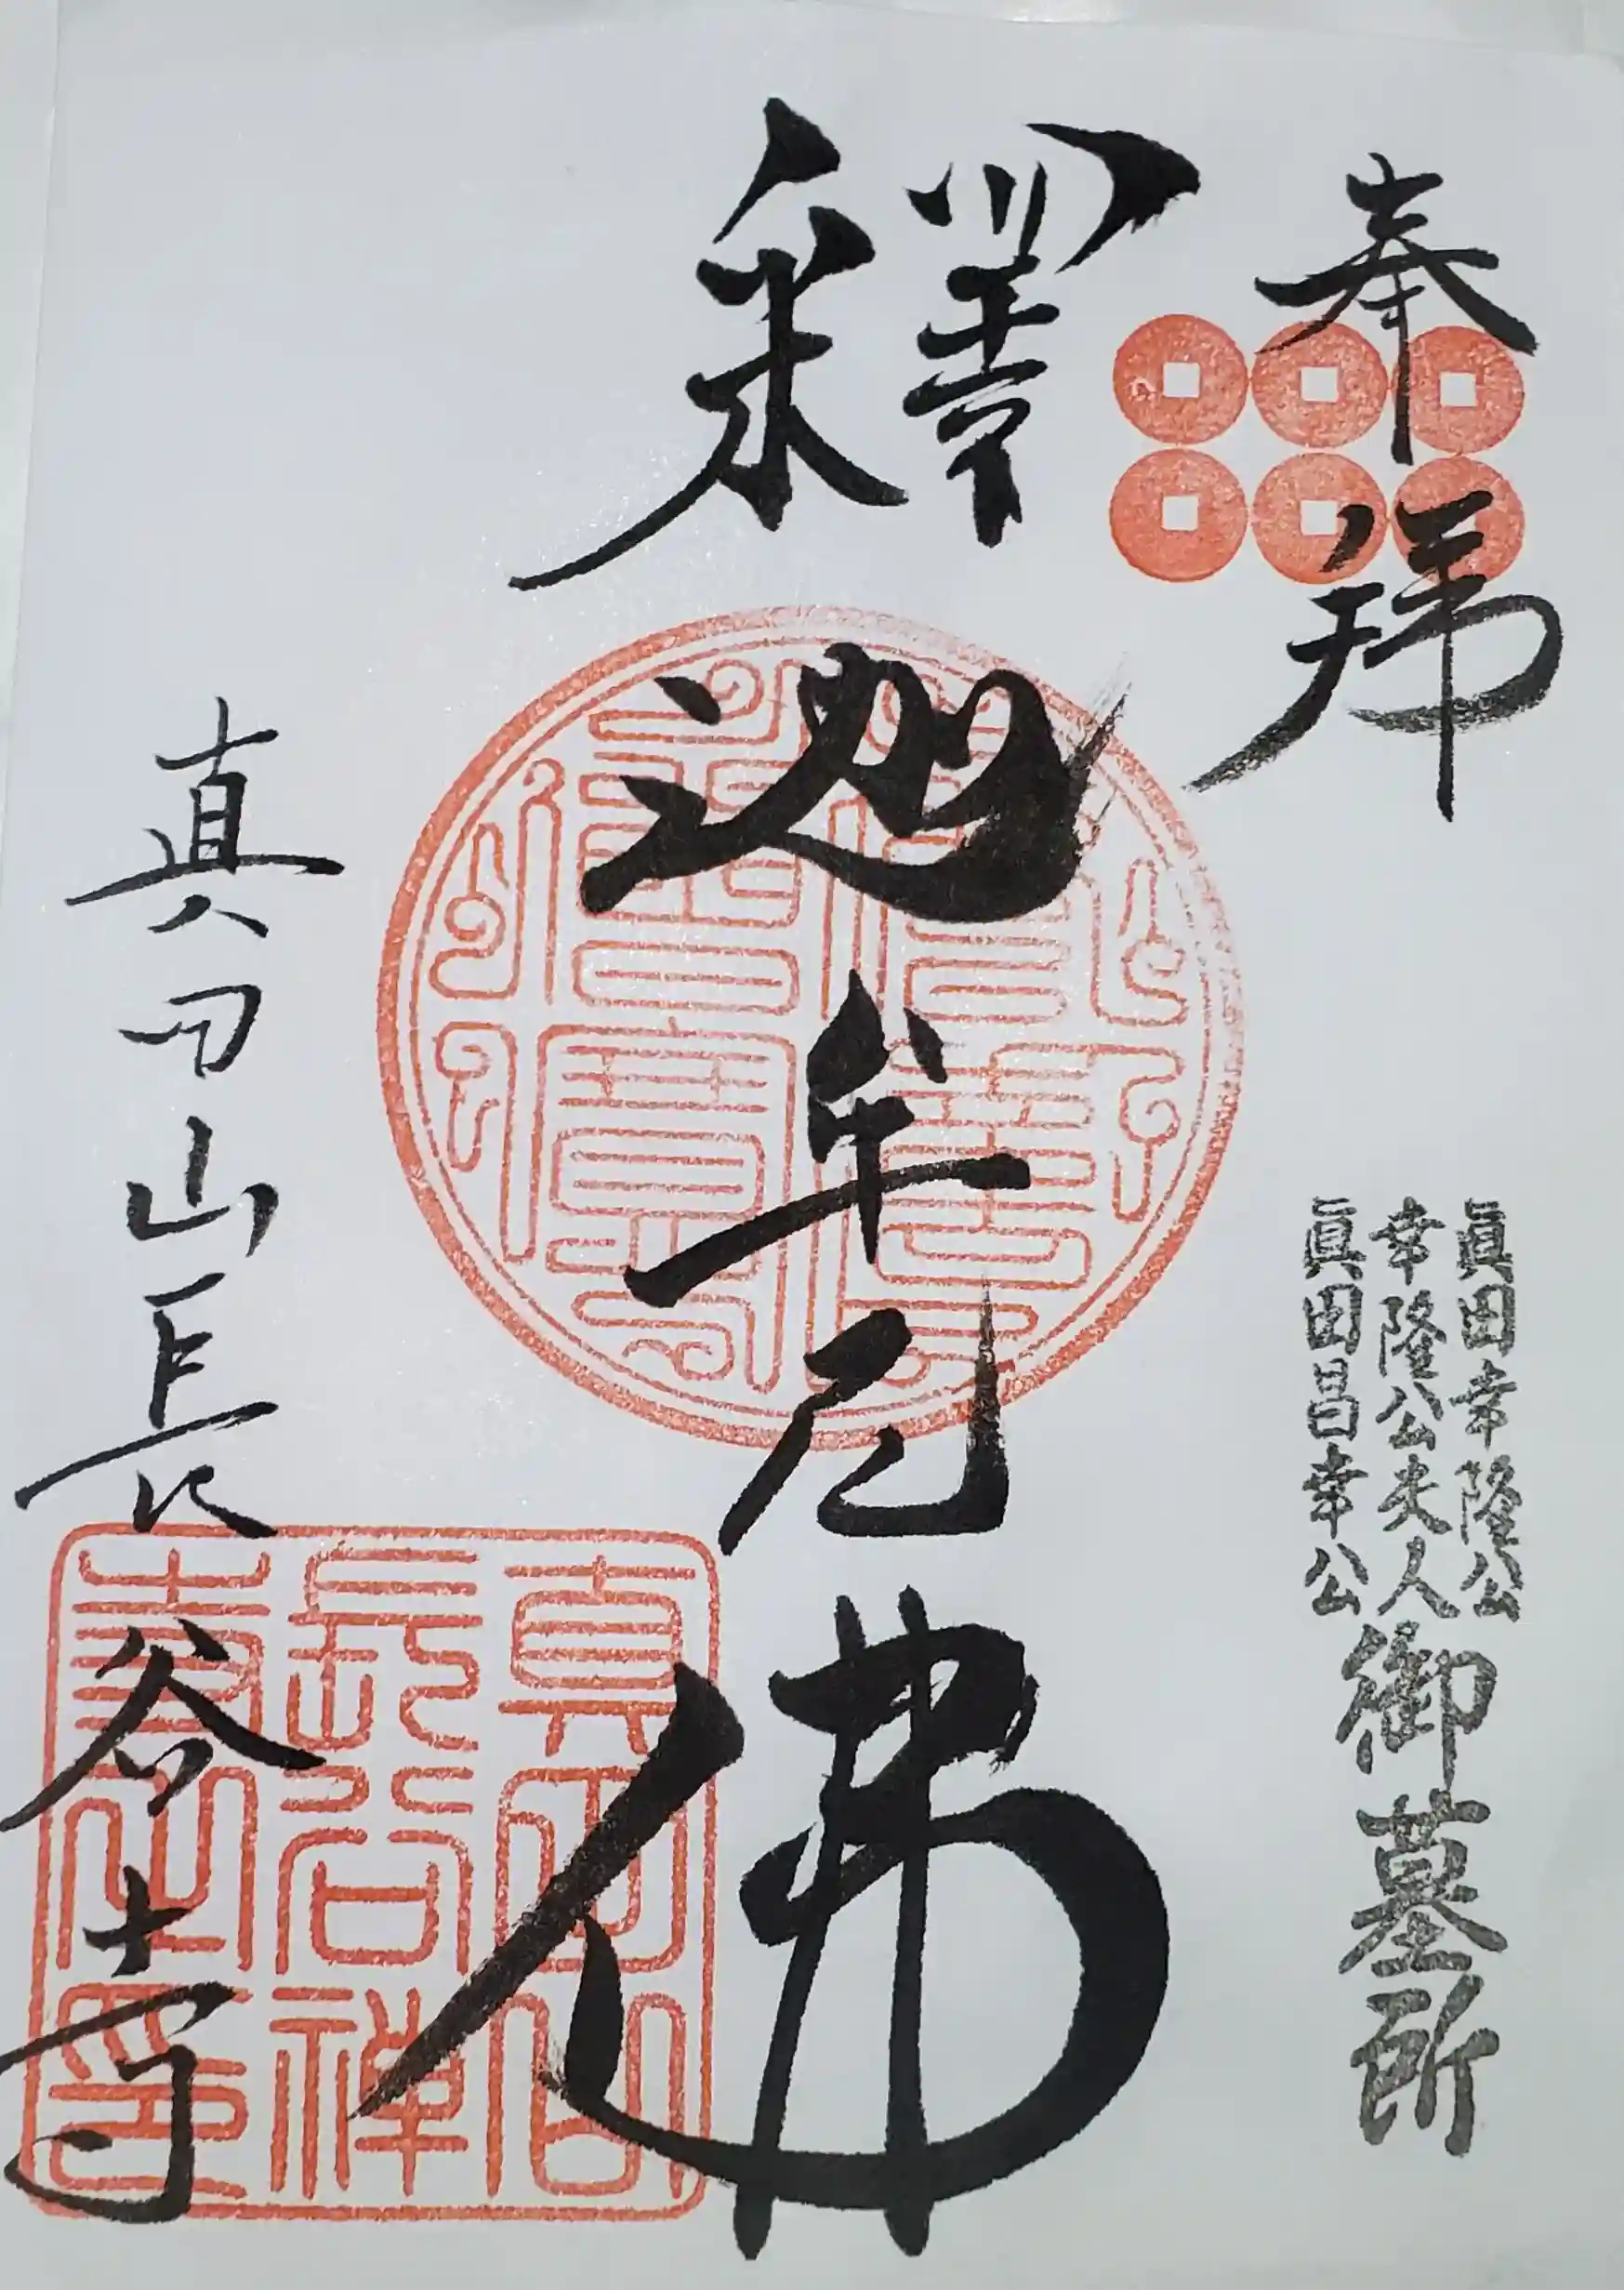 奉拝
眞田幸隆公
幸隆公夫人
眞田昌幸公
御墓所
釋迦牟尼佛
真田山長谷寺
佛法僧寶
真田山
長谷禅
寺之印